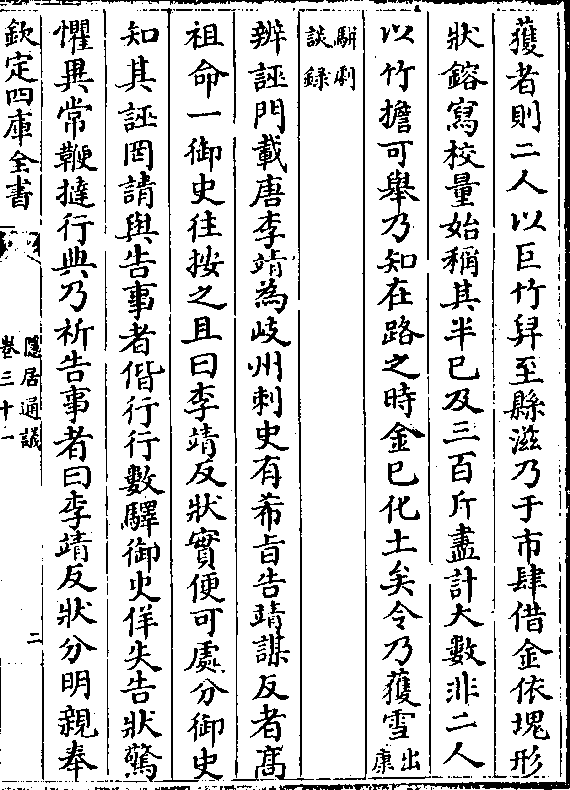 獲者則二人以巨竹舁至縣滋乃于市肆借金依塊形
狀鎔寫校量始稱其半已及三百斤盡計大數非二人
以竹擔可舉乃知在路之時金已化土矣令乃獲雪出
康
駢劇
談録
辨誣門載唐李靖為岐州刺史有希旨告靖謀反者髙
祖命一御史往按之且曰李靖反狀實便可處分御史
知其誣罔請與告事者偕行行數驛御史佯失告狀驚
懼異常鞭撻行典乃祈告事者曰李靖反狀分明親奉
欽定四庫全書
隱居通議
卷三十一
二